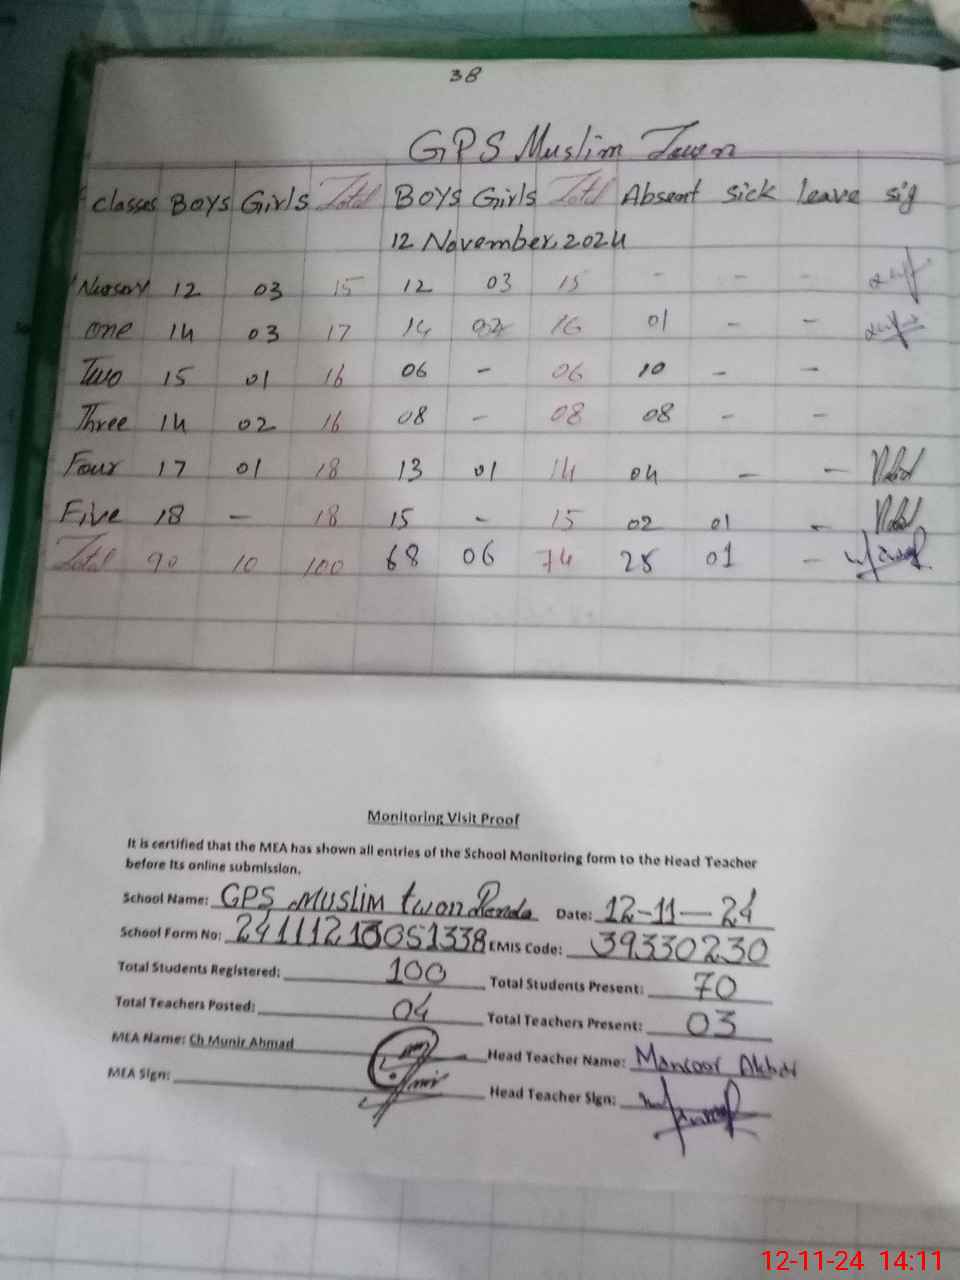 38
GPS Muslim Town
classes Boys Girls Total Boys Girls Total Absent sick leave sig
12 November, 2024
Nursory 12 03 15 12 03 15 - - -
one 14 03 17 14 02 16 01 - -
Two 15 01 16 06 - 06 10 - -
Three 14 02 16 08 - 08 08 - -
Four 17 01 18 13 01 14 04 - -
Five 18 - 18 15 - 15 02 01 -
Total 90 10 100 68 06 74 25 01 -
Monitoring Visit Proof
It is certified that the MEA has shown all entries of the School Monitoring form to the Head Teacher
before Its online submission.
School Name: GPS MUSLIM twon Danda Date: 12-11-24
School Form No: 24111213051338 EMIS Code: 39330230
Total Students Registered: 100 Total Students Present: 70
Total Teachers Posted: 04 Total Teachers Present: 03
MEA Name: Ch Munir Ahmad Head Teacher Name: Mansoor Akhtar
MEA Sign: Head Teacher Sign:
12-11-24 14:11